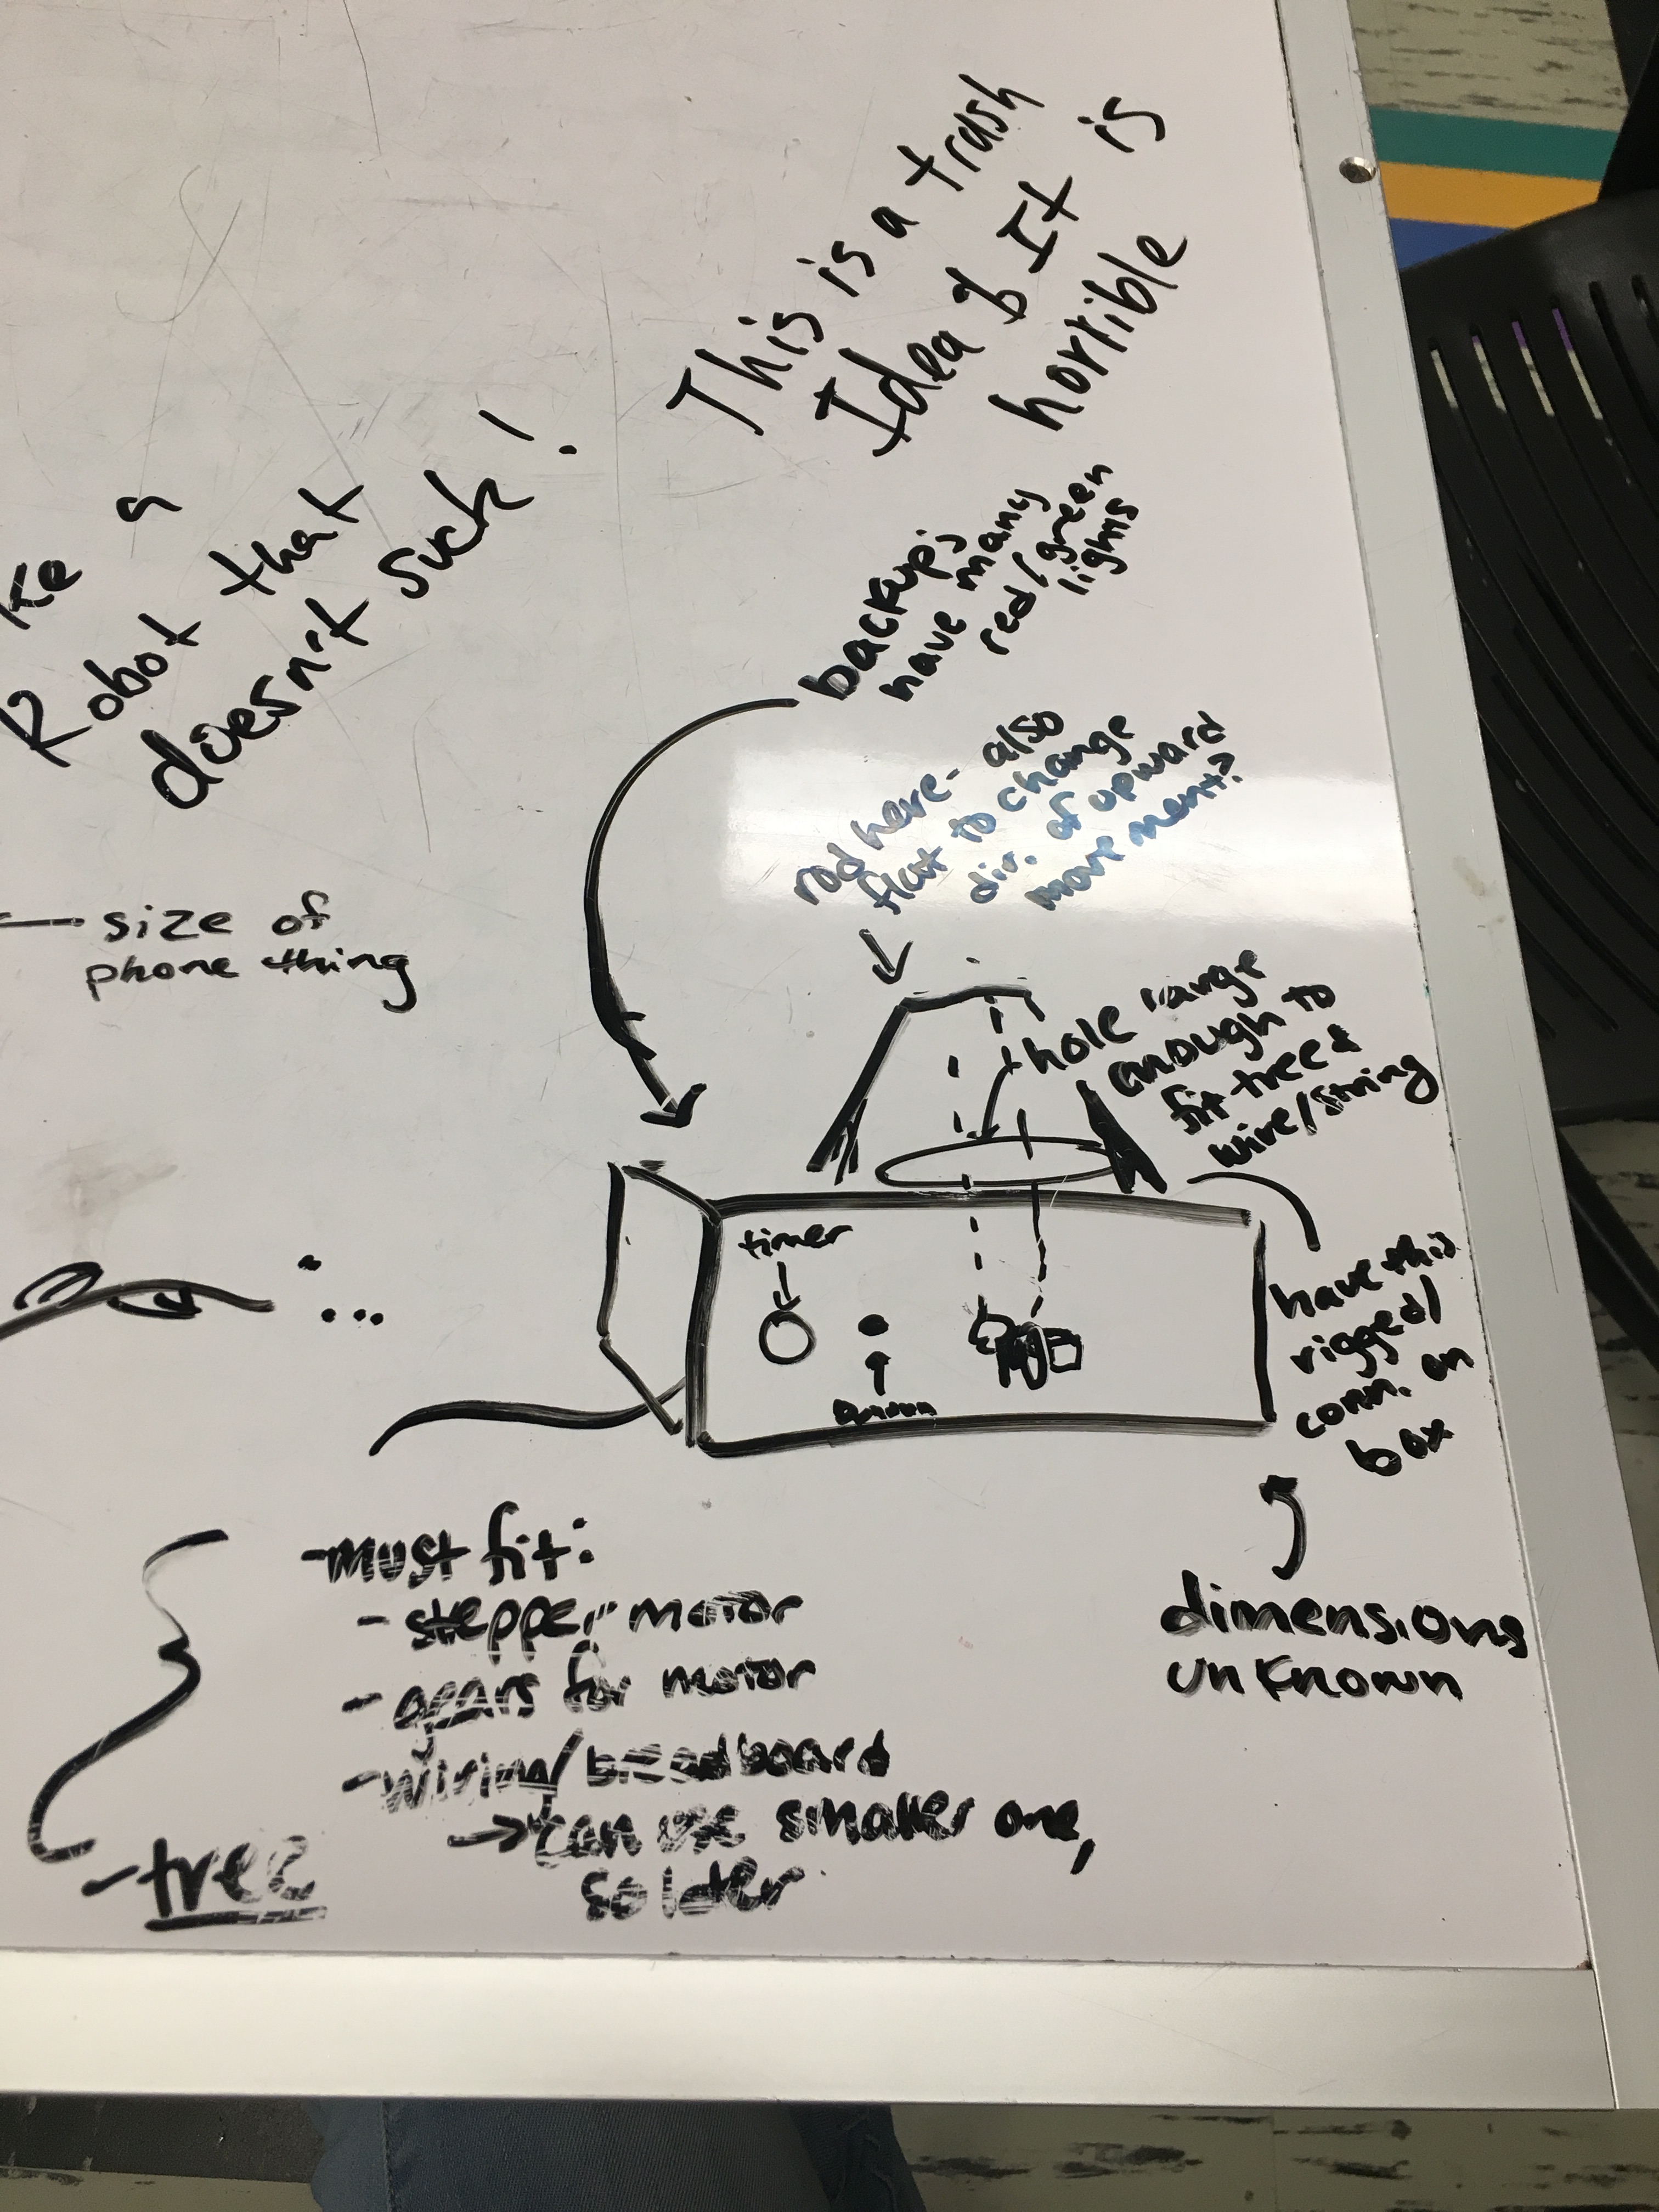 This is a trash
Idea & It is
horrible
a
Robot that
doesn't suck!
backup:
have many
red/green
lights
rod here - also
flat to change
dir. of upward
movement?
size of
phone thing
hole large
enough to
fit tree &
wire/string
timer
have this
rigged/
conn. on
box
dimensions
unknown
- must fit:
- stepper motor
- gears for motor
- wiring/breadboard
→ can use smaller one,
solder
- tree